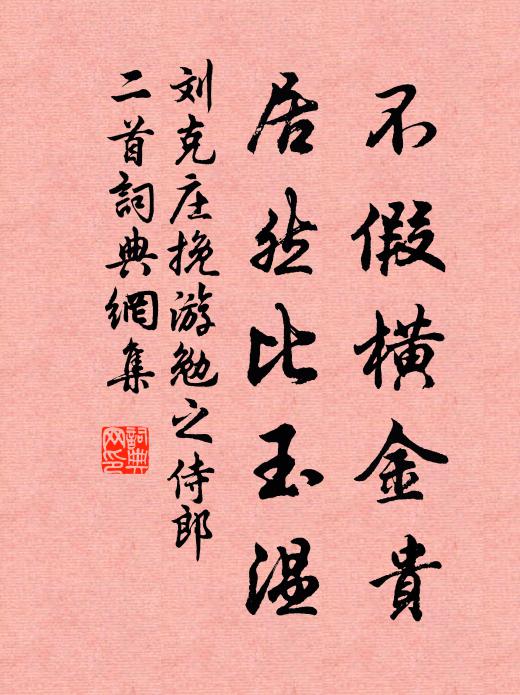 不假橫金貴
居然比玉温
刘克庄挽游勉之侍郎
二首詞典網集
詞典
网印